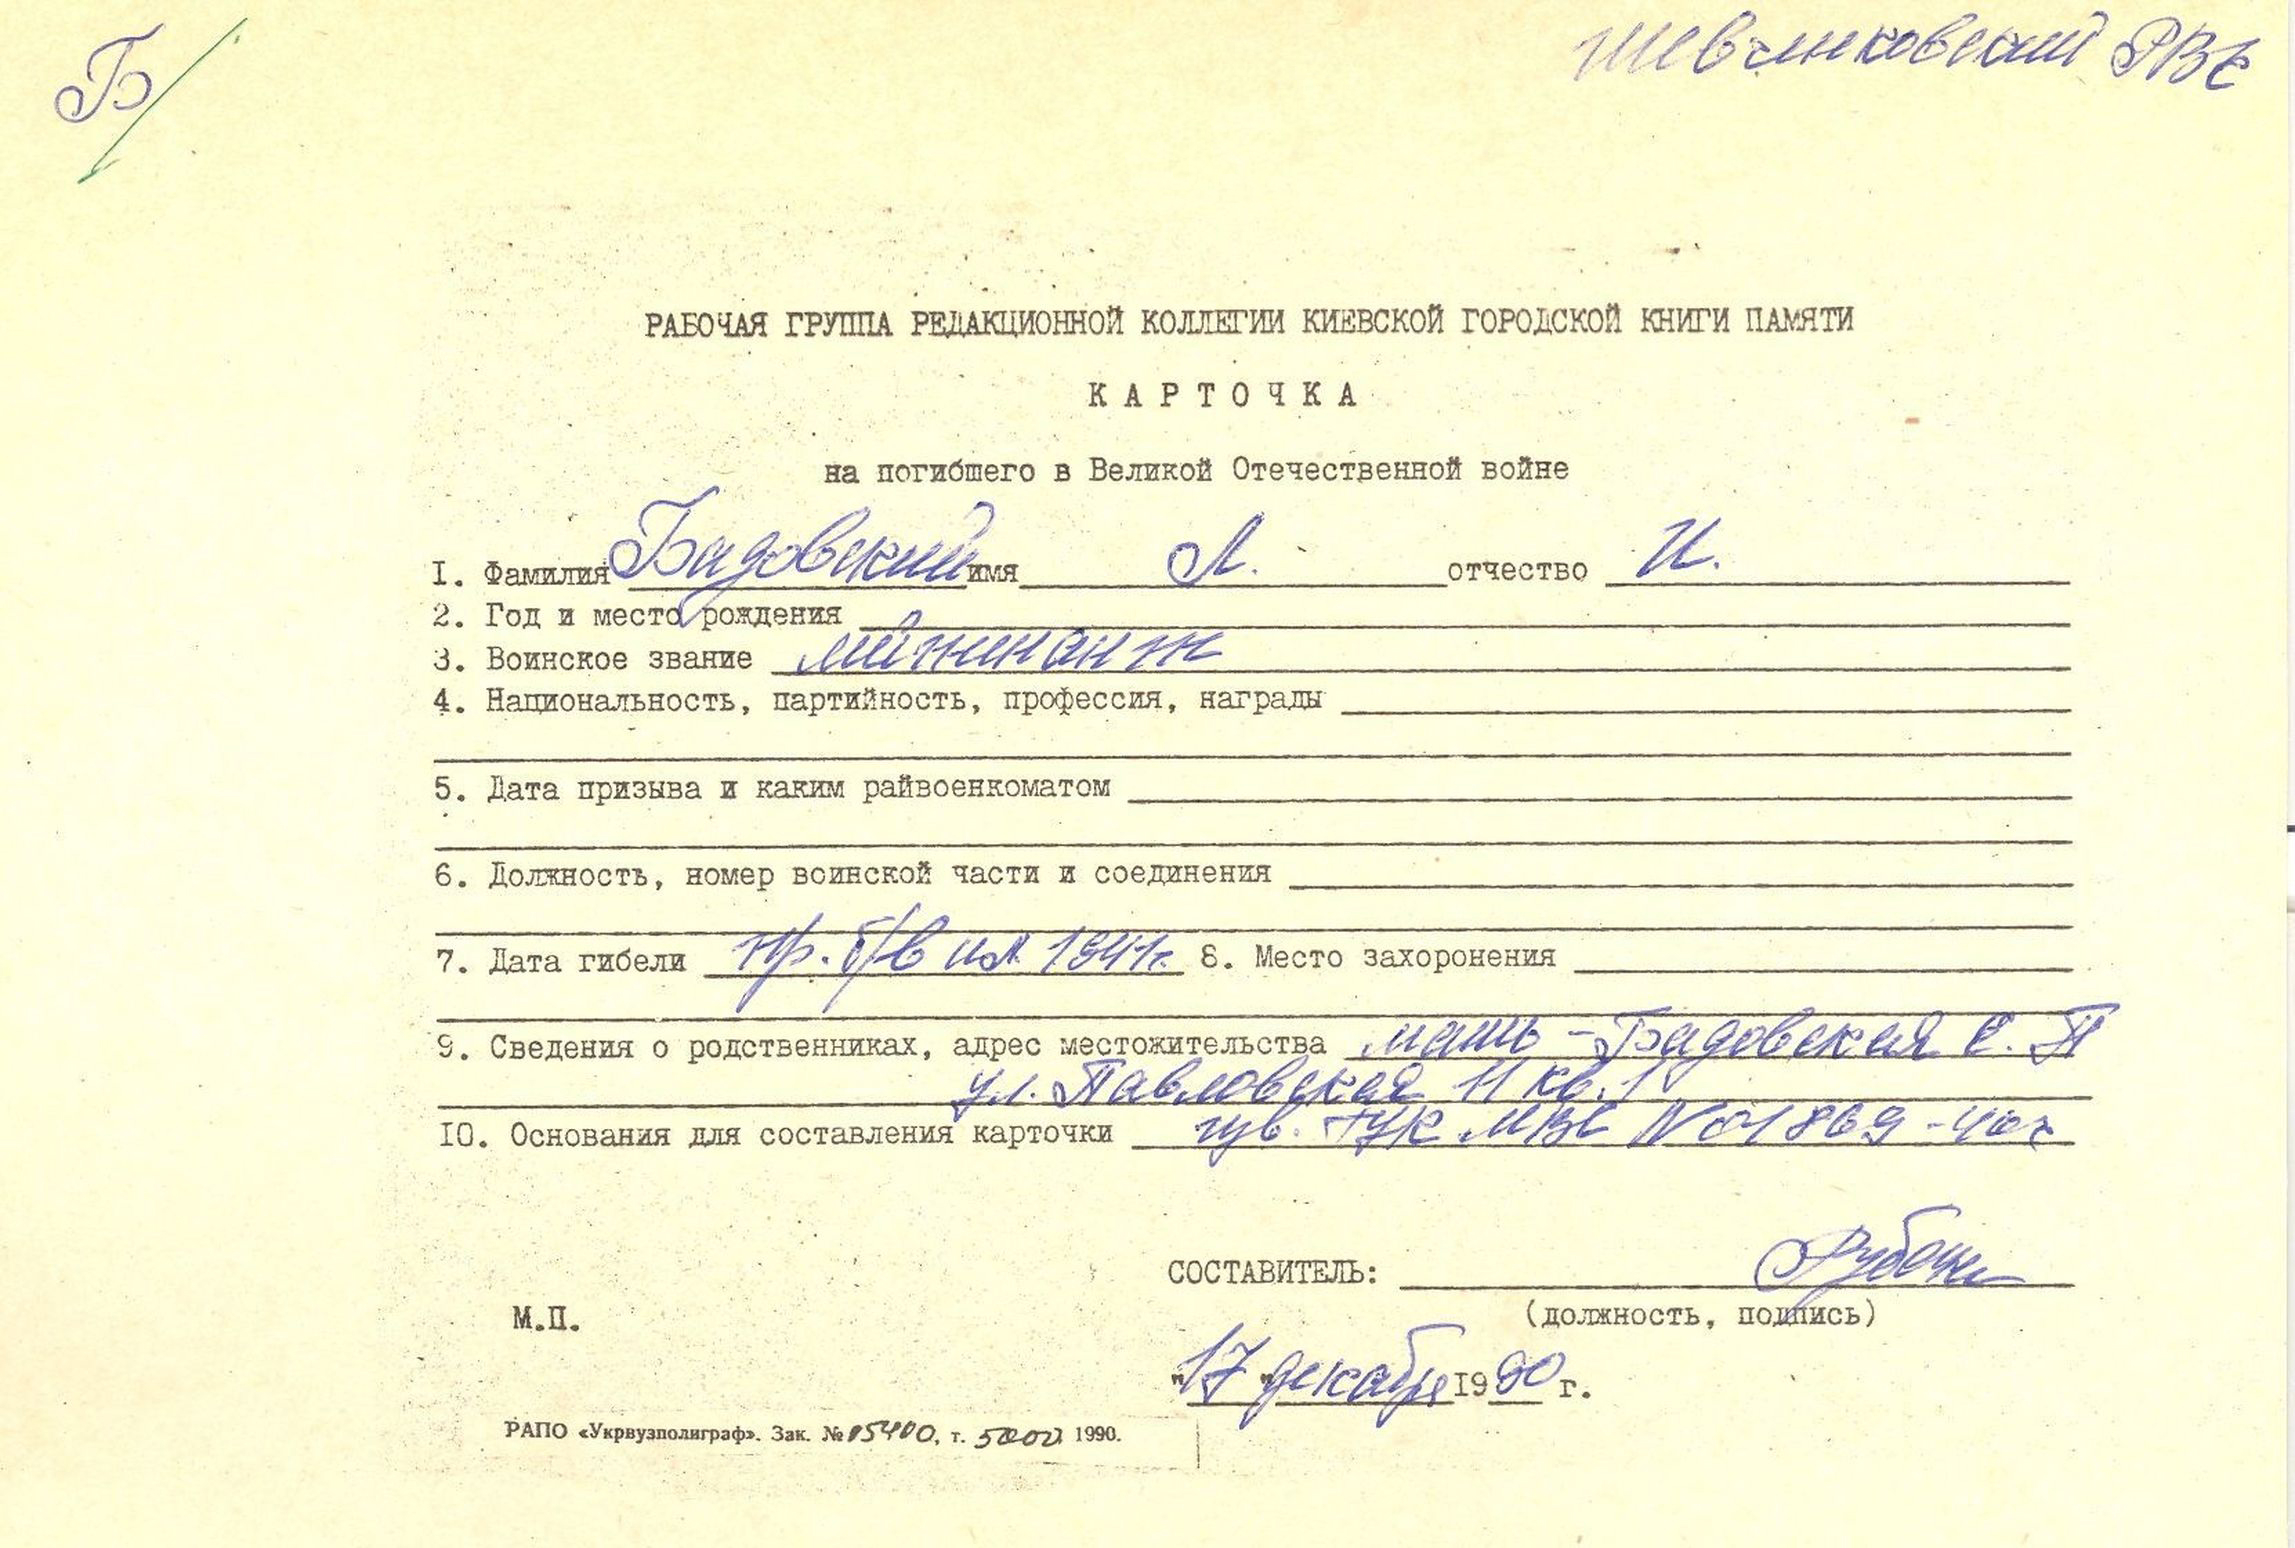 Б/
Шевченковский РВК
РАБОЧАЯ ГРУППА РЕДАКЦИОННОЙ КОЛЛЕГИИ КИЕВСКОЙ ГОРОДСКОЙ КНИГИ ПАМЯТИ
КАРТОЧКА
на погибшего в Великой Отечественной войне
I. Фамилия Бадовский имя Л. отчество И.
2. Год и место рождения
3. Воинское звание лейтенант
4. Национальность, партийность, профессия, награды
5. Дата призыва и каким райвоенкоматом
6. Должность, номер воинской части и соединения
7. Дата гибели пр. б/в 1941г. 8. Место захоронения
9. Сведения о родственниках, адрес местожительства мать - Бадовская Е. П
ул. Павловская 11 кв. 1
10. Основания для составления карточки ГУК МВС N 01869
СОСТАВИТЕЛЬ:
(должность, подпись)
М.П.
"17" декабря 1990 г.
РАПО «Укрвузполиграф». Зак. № 05400, т. 5000 1990.